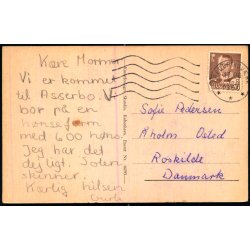 Kære Mormor
Vi er kommet
til Asserbo. Vi
bor på en
hønsefarm
med 600 høns.
Jeg har det
dejligt. Solen
skinner.
Kærlig hilsen
Sofie Pedersen
Åholm Osted
Roskilde
Danmark